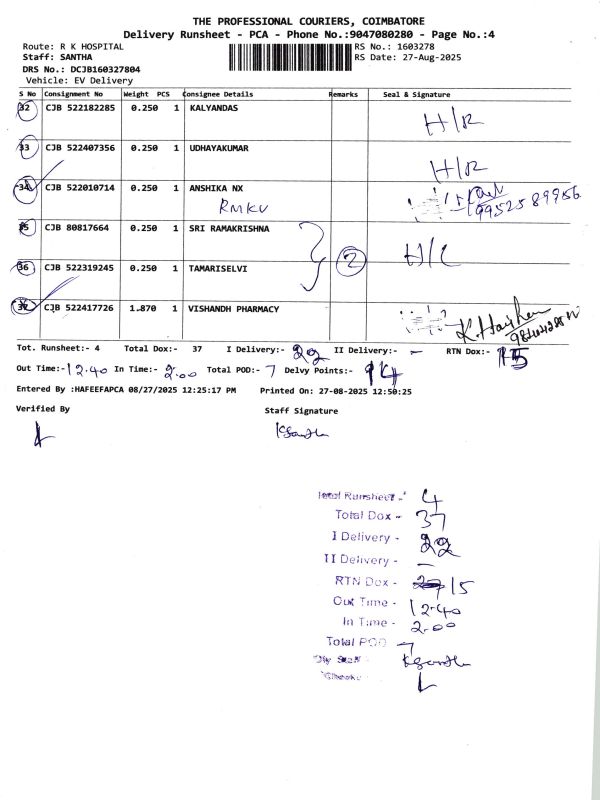 THE PROFESSIONAL COURIERS, COIMBATORE
Delivery Runsheet - PCA - Phone No.:9047080280 - Page No.:4
Route: R K HOSPITAL
RS No.: 1603278
Staff: SANTHA
RS Date: 27-Aug-2025
DRS No.: DCJB160327804
Vehicle: EV Delivery
S No Consignment No Weight PCS Consignee Details Remarks Seal & Signature
32 CJB 522182285 0.250 1 KALYANDAS H/R
33 CJB 522407356 0.250 1 UDHAYAKUMAR H/R
34 CJB 522010714 0.250 1 ANSHIKA NX
RMKV 9952589956
35 CJB 80817664 0.250 1 SRI RAMAKRISHNA
2 H/C
36 CJB 522319245 0.250 1 TAMARISELVI
37 CJB 522417726 1.870 1 VISHANDH PHARMACY
Tot. Runsheet:- 4 Total Dox:- 37 I Delivery:- 22 II Delivery:- - RTN Dox:- 15
Out Time:- 12.40 In Time:- 2.00 Total POD:- 7 Delvy Points:- 14
Entered By :HAFEEFAPCA 08/27/2025 12:25:17 PM Printed On: 27-08-2025 12:50:25
Verified By Staff Signature
KSantha
Total Runsheet - 4
Total Dox - 37
I Delivery - 22
II Delivery - -
RTN Dox - 15
Out Time - 12.40
In Time - 2.00
Total POD - 7
Dly Staff - KSantha